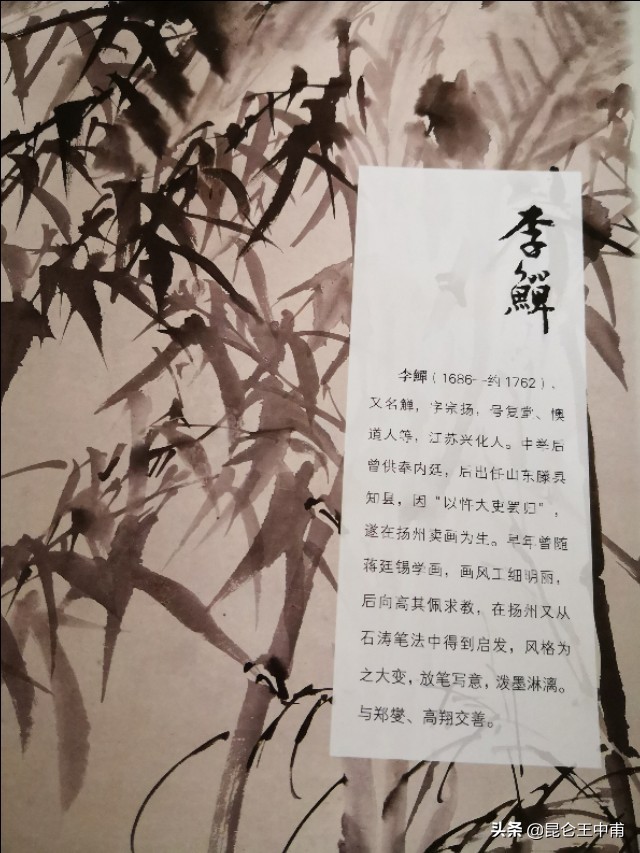 李鱓
李鱓（1686—约1762）、
又名觯，字宗扬，号复堂、懊
道人等，江苏兴化人。中举后
曾供奉内廷，后出任山东滕县
知县，因“以忤大吏罢归”，
遂在扬州卖画为生。早年曾随
蒋廷锡学画，画风工细明丽，
后向高其佩求教，在扬州又从
石涛笔法中得到启发，风格为
之大变，放笔写意，泼墨淋漓。
与郑燮、高翔交善。
头条 @昆仑王中甫